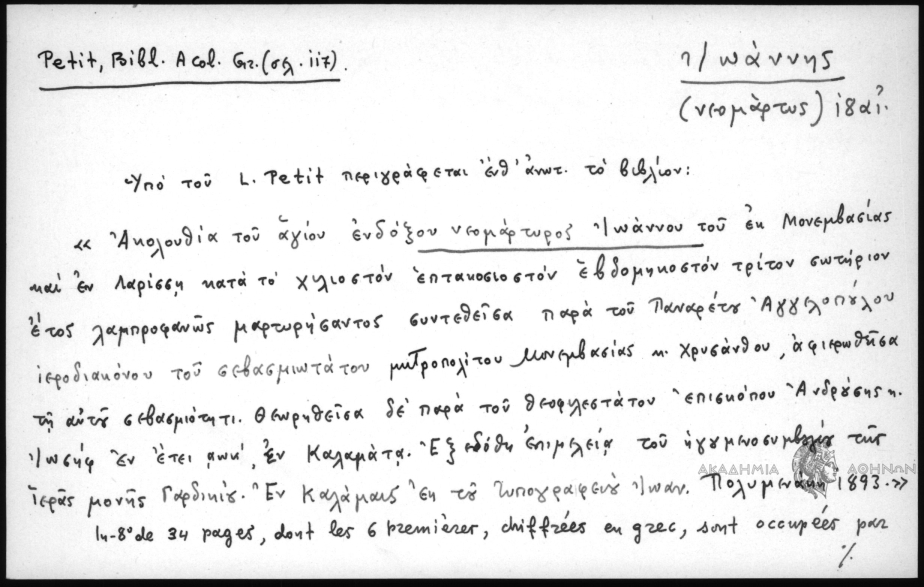 Petit, Bibl. Acol. Gr. (σελ. 117).
Ἰωάννης
(νεομάρτυς) 18αι.
Ὑπό τοῦ L. Petit περιγράφεται ἔνθ' ἀνωτ. τό βιβλίον:
« Ἀκολουθία τοῦ ἁγίου ἐνδόξου νεομάρτυρος Ἰωάννου τοῦ ἐκ Μονεμβασίας
καί ἐν Λαρίσσῃ κατά τό χιλιοστόν ἑπτακοσιοστόν ἑβδομηκοστόν τρίτον σωτήριον
ἔτος λαμπροφανῶς μαρτυρήσαντος συντεθεῖσα παρά τοῦ Παναρέτου Ἀγγελοπούλου
ἱεροδιακόνου τοῦ σεβασμιωτάτου μητροπολίτου Μονεμβασίας κ. Χρυσάνθου, ἀφιερωθεῖσα
τῇ αὐτοῦ σεβασμιότητι. Θεωρηθεῖσα δέ παρά τοῦ θεοφιλεστάτου ἐπισκόπου Ἀνδρούσης κ.
Ἰωσήφ ἐν ἔτει ἐν Καλαμάτᾳ. Ἐξεδόθη ἐπιμελείᾳ τοῦ ἡγουμενοσυμβουλίου τῆς
ἱερᾶς μονῆς Γαρδικίου. Ἐν Καλάμαις ἐκ τοῦ τυπογραφείου Ἰωαν. Πολυμενάκη 1893.»
In-8° de 34 pages, dont les 6 premières, chiffrées en grec, sont occupées par
%
ΑΚΑΔΗΜΙΑ ΑΘΗΝΩΝ